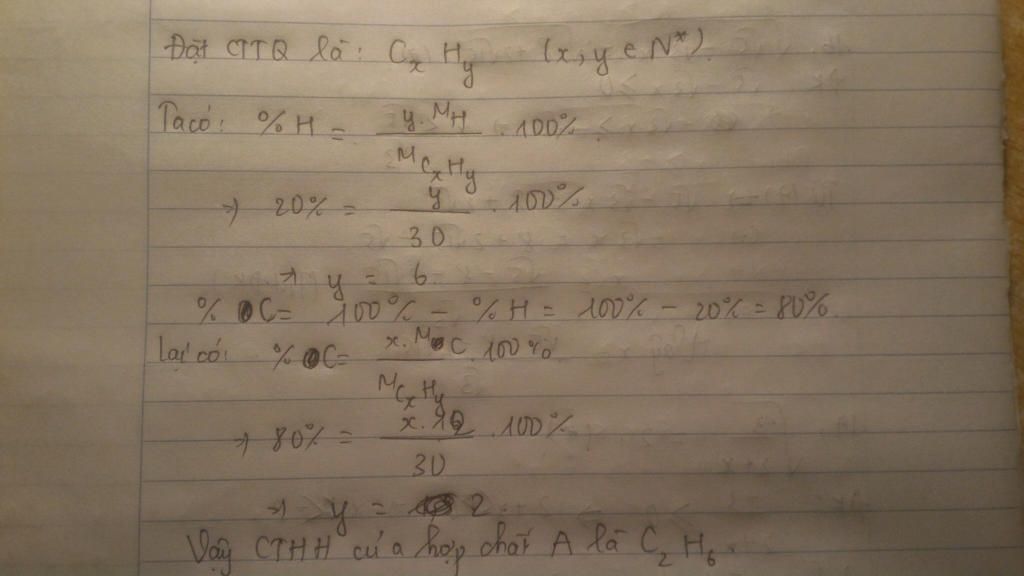 Đặt CTTQ là: CₓHᵧ (x, y ∈ N*).
Ta có: %H = y.M_H / M_CₓHᵧ . 100%
=> 20% = y / 30 . 100%
=> y = 6
% C = 100% - %H = 100% - 20% = 80%.
Lại có: % C = x.M C / M_CₓHᵧ . 100%
=> 80% = x.12 / 30 . 100%
=> y = 2
Vậy CTHH của hợp chất A là C₂H₆.